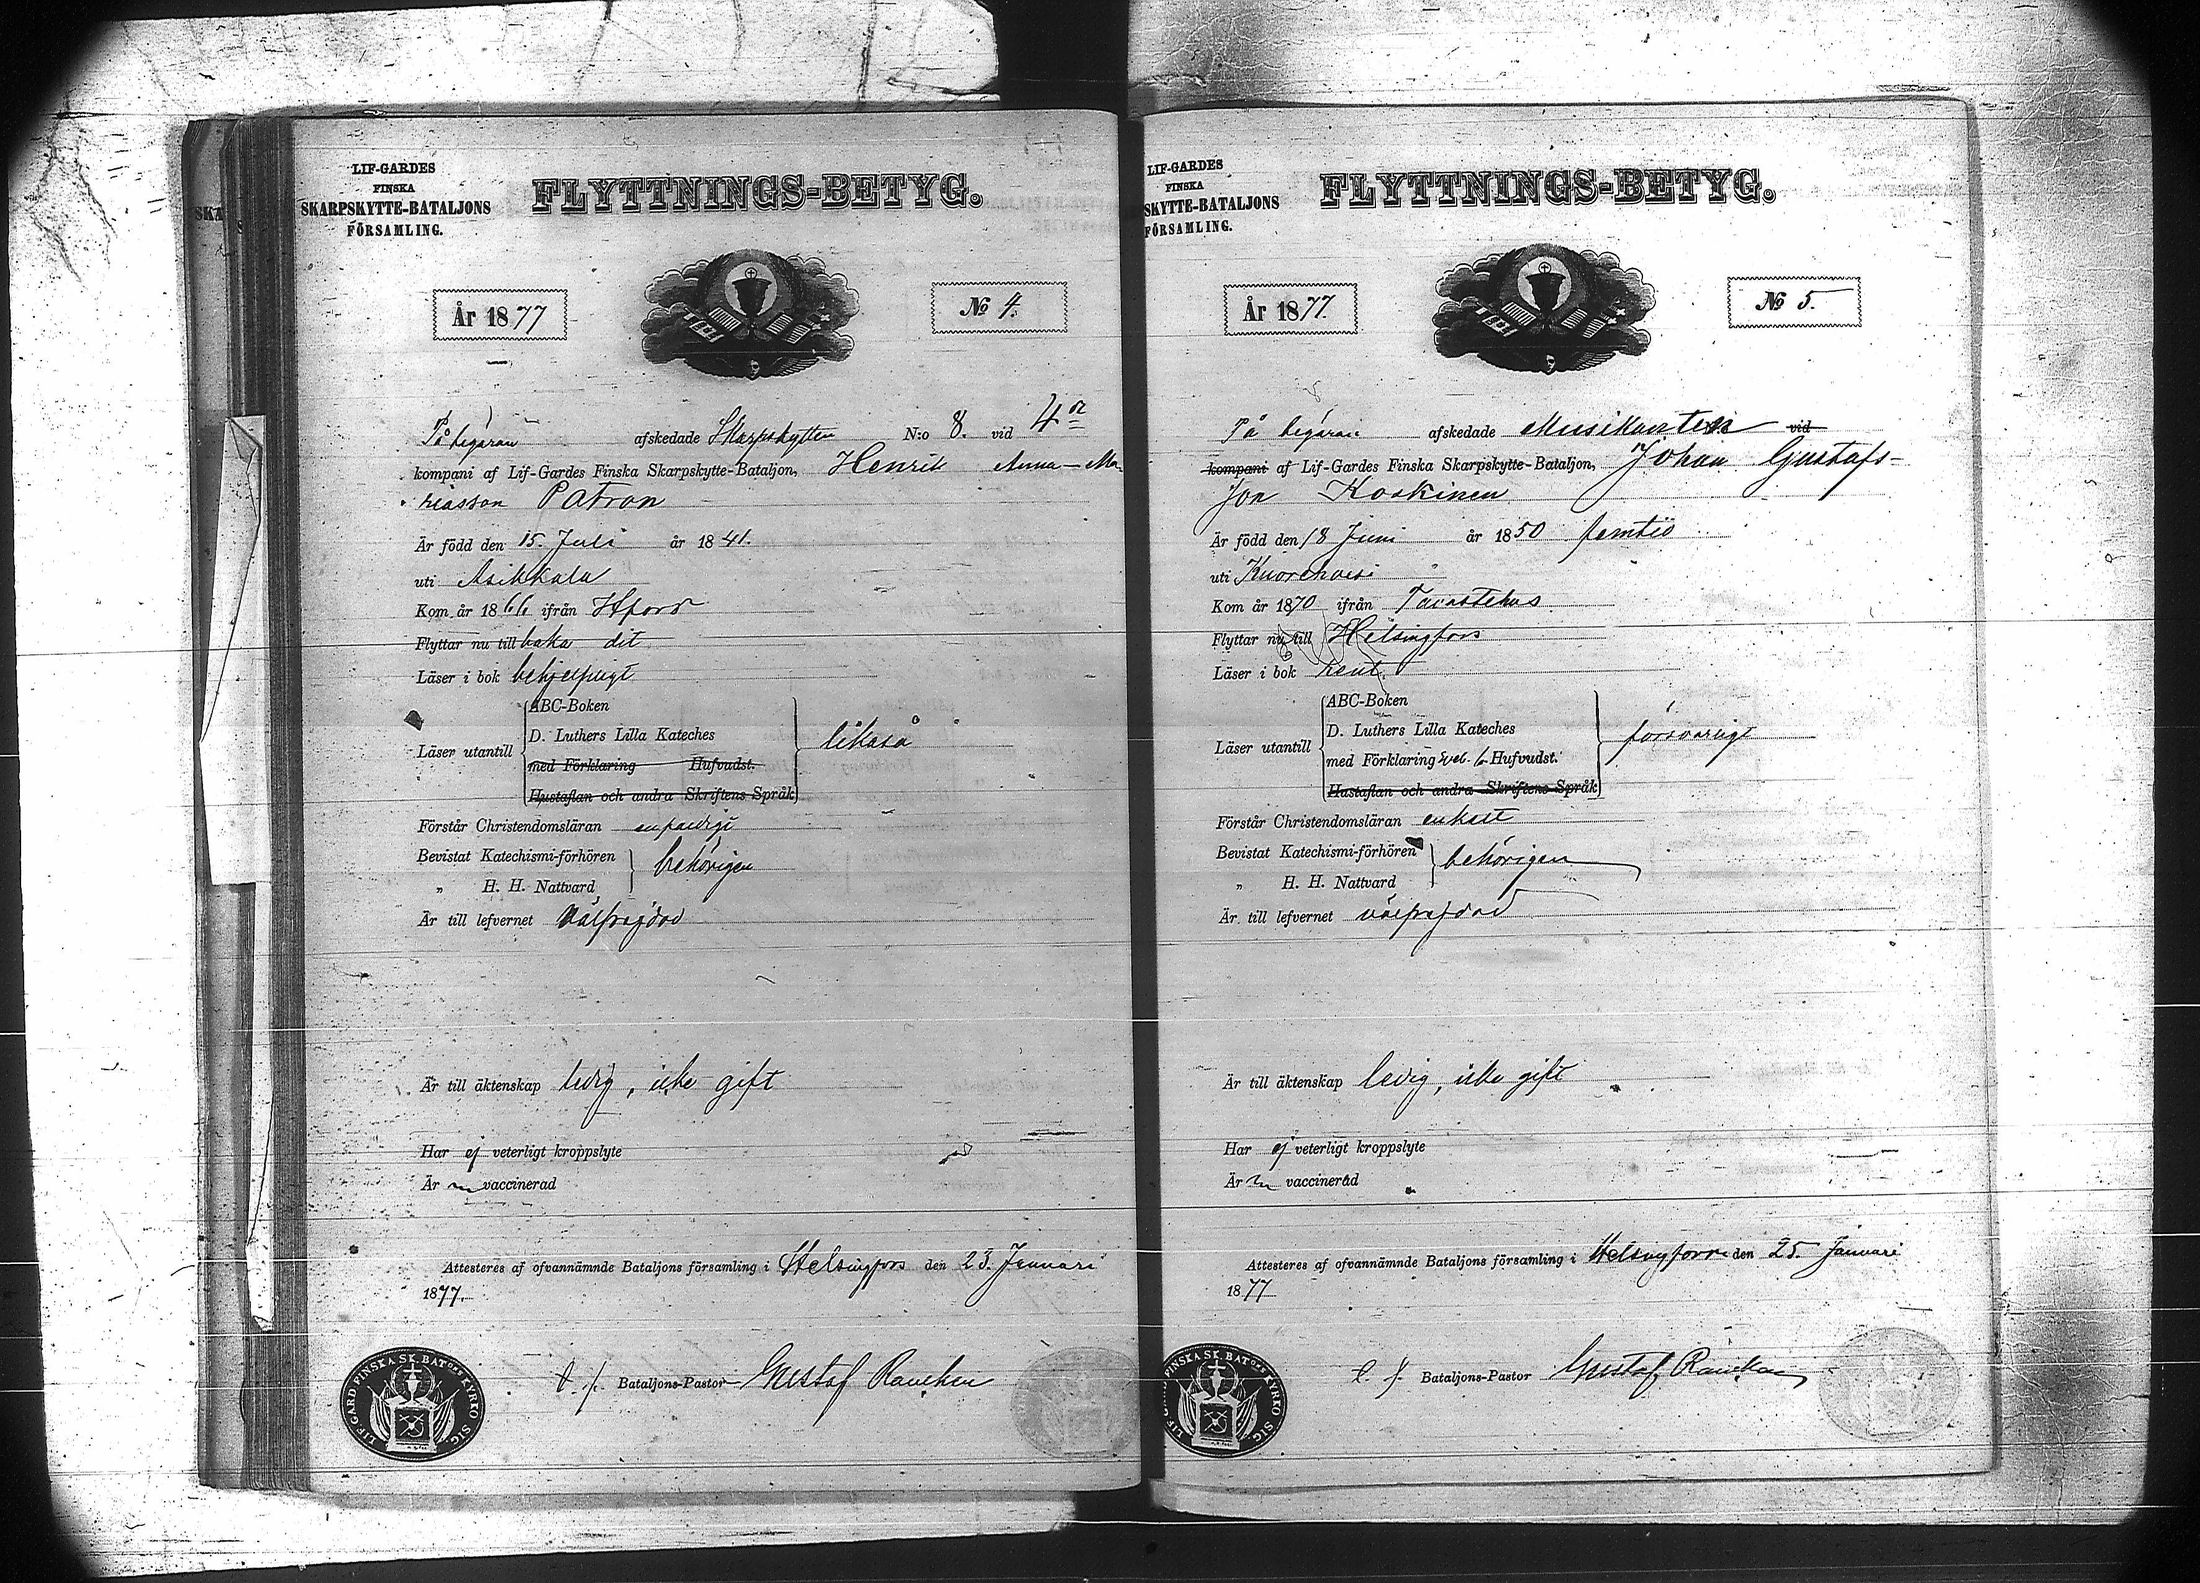 LIF-GARDES
FINSKA
SKARPSKYTTE-BATALJONS
FÖRSAMLING.
FLYTTNINGS-BETYG.
År 1877
No 4.
På begäran afskedade Skarpskytten N:o 8. vid 4de
kompani af Lif-Gardes Finska Skarpskytte-Bataljon, Henrik Anna-Ma-
riasson Patron
Är född den 15. Juli år 1841.
uti Asikkala
Kom år 1866 ifrån Hfors
Flyttar nu tillbaka dit
Läser i bok behjelpligt
Läser utantill
ABC-Boken
D. Luthers Lilla Kateches
med Förklaring Hufvudst.
Hustaflan och andra Skriftens Språk
likaså
Förstår Christendomsläran enfaldigt
Bevistat Katechismi-förhören
„ H. H. Nattvard
behörigen
Är till lefvernet välfrejdad
Är till äktenskap ledig, icke gift
Har ej veterligt kroppslyte
Är vaccinerad
Attesteres af ofvannämnde Bataljons församling i Helsingfors den 23. Januari
1877.
Bataljons-Pastor Gustaf
LIF GARD FINSKA SK. BAT:ons KYRKO SIG.
LIF-GARDES
FINSKA
SKYTTE-BATALJONS
FÖRSAMLING.
FLYTTNINGS-BETYG.
År 1877.
No 5.
På begäran afskedade Musikanten vid
kompani af Lif-Gardes Finska Skarpskytte-Bataljon, Johan Gustafs-
son Koskinen
Är född den 18 Juni år 1850 femtio
uti Kuorehvesi
Kom år 1870 ifrån Tavastehus
Flyttar nu till Helsingfors
Läser i bok rent.
Läser utantill
ABC-Boken
D. Luthers Lilla Kateches
med Förklaring 6 Hufvudst.
Hustaflan och andra Skriftens Språk
försvarligt
Förstår Christendomsläran enkelt
Bevistat Katechismi-förhören
„ H. H. Nattvard
behörigen
Är till lefvernet välfrejdad
Är till äktenskap ledig, icke gift
Har ej veterligt kroppslyte
Är vaccinerad
Attesteres af ofvannämnde Bataljons församling i Helsingfors den 25 Januari
1877
Bataljons-Pastor Gustaf
FINSKA SK. BAT:ons KYRKO SIG.